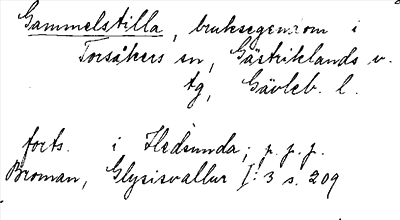 Gammelstilla, bruksegendom i
Torsåkers sn, Gästriklands v.
tg, Gävleb. l.
forts. i Hedsunda; p. p. p.
Broman, Glysisvallur I: 3 s. 209